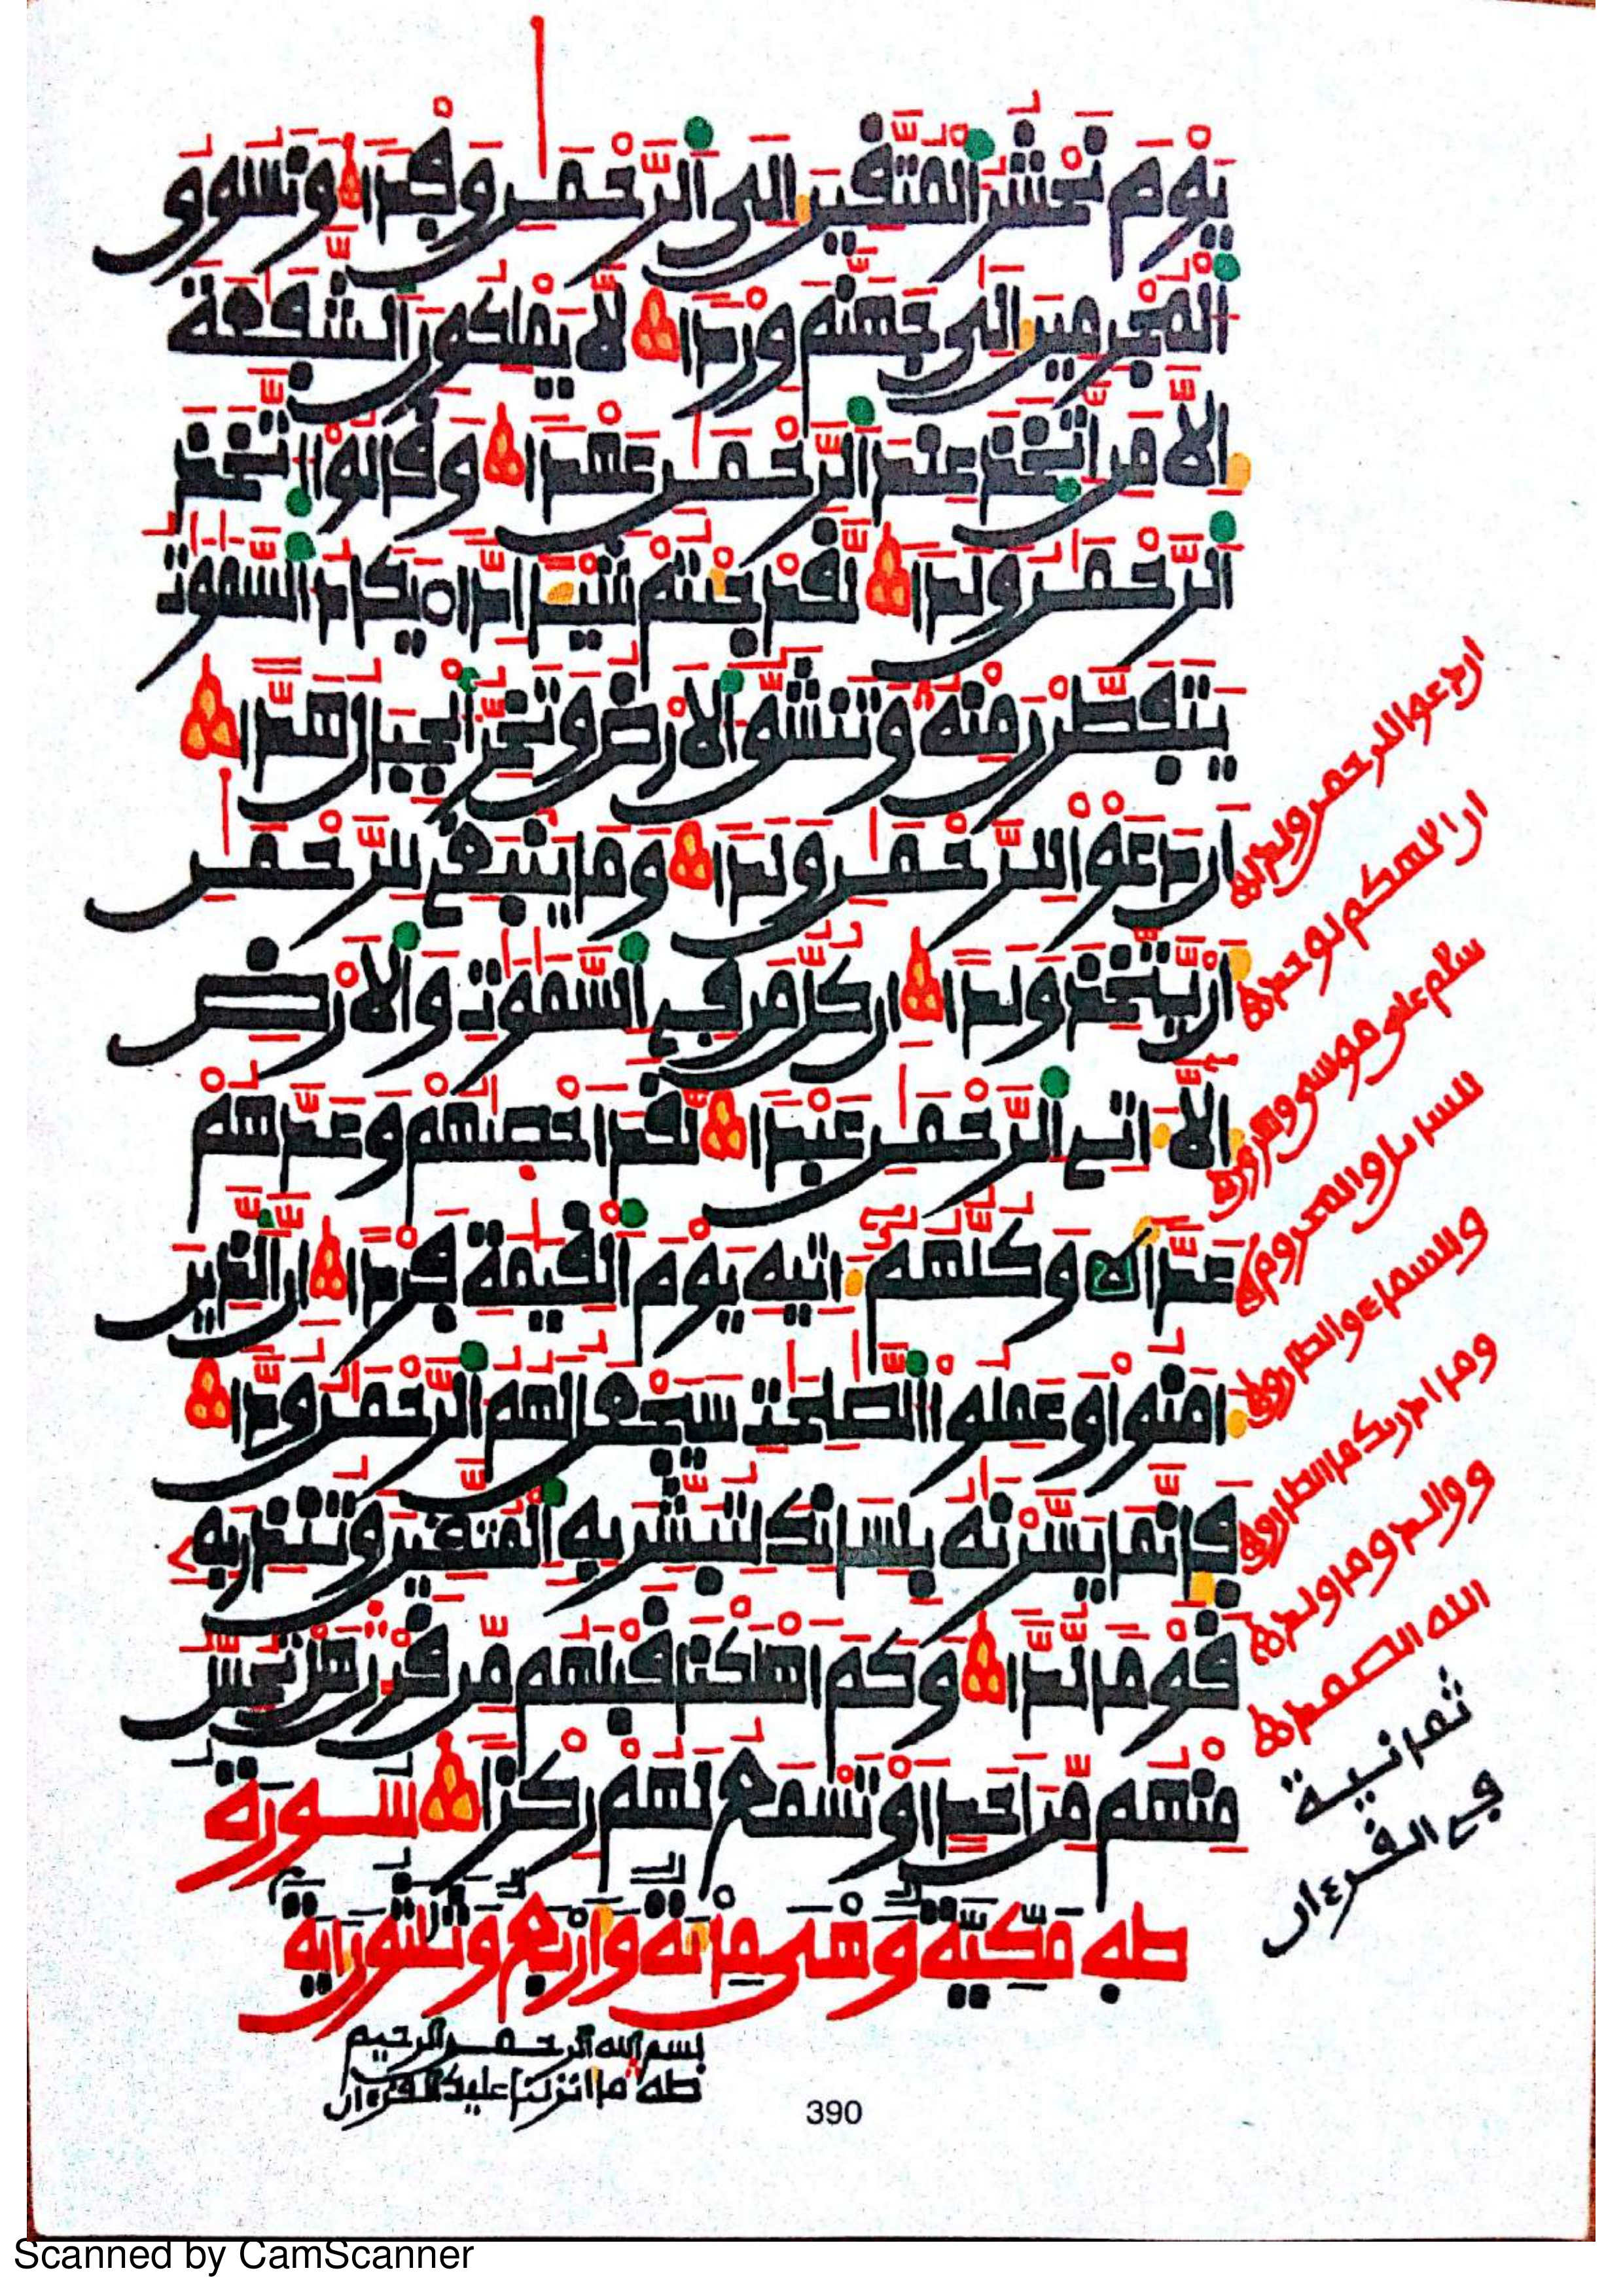 يَوْمَ نَحْشُرُ الْمُتَّقِينَ إِلَى الرَّحْمَٰنِ وَفْدًا وَنَسُوقُ
الْمُجْرِمِينَ إِلَىٰ جَهَنَّمَ وِرْدًا لَّا يَمْلِكُونَ الشَّفَٰعَةَ
إِلَّا مَنِ اتَّخَذَ عِندَ الرَّحْمَٰنِ عَهْدًا وَقَالُوا اتَّخَذَ
الرَّحْمَٰنُ وَلَدًا لَّقَدْ جِئْتُمْ شَيْـًٔا إِدًّا يَكَادُ السَّمَٰوَٰتُ
يَتَفَطَّرْنَ مِنْهُ وَتَنشَقُّ الْأَرْضُ وَتَخِرُّ الْجِبَالُ هَدًّا
أَن دَعَوْا لِلرَّحْمَٰنِ وَلَدًا وَمَا يَنبَغِي لِلرَّحْمَٰنِ
أَن يَتَّخِذَ وَلَدًا إِن كُلُّ مَن فِي السَّمَٰوَٰتِ وَالْأَرْضِ
إِلَّا ءَاتِي الرَّحْمَٰنِ عَبْدًا لَّقَدْ أَحْصَىٰهُمْ وَعَدَّهُمْ
عَدًّا وَكُلُّهُمْ ءَاتِيهِ يَوْمَ الْقِيَٰمَةِ فَرْدًا إِنَّ الَّذِينَ
ءَامَنُوا وَعَمِلُوا الصَّٰلِحَٰتِ سَيَجْعَلُ لَهُمُ الرَّحْمَٰنُ وُدًّا
فَإِنَّمَا يَسَّرْنَٰهُ بِلِسَانِكَ لِتُبَشِّرَ بِهِ الْمُتَّقِينَ وَتُنذِرَ بِهِ
قَوْمًا لُّدًّا وَكَمْ أَهْلَكْنَا قَبْلَهُم مِّن قَرْنٍ هَلْ تُحِسُّ
مِنْهُم مِّنْ أَحَدٍ أَوْ تَسْمَعُ لَهُمْ رِكْزًا سورة
طه مَكِّيَّةٌ وَهْيَ مِائَةٌ وَأَرْبَعٌ وَثَلَٰثُونَ ءَايَةً
بسم الله الرحمن الرحيم
طه ما انزلنا عليك القرءان
ان دعوا للرحمن ولدا
ان الهكم لوحد
سلم على موسى وهرون
للسائل والمحروم
والسماء والطارق
وما ادريك ما الطارق
ووالد وما ولد
الله الصمد
ثمانية
في القرءان
390
Scanned by CamScanner